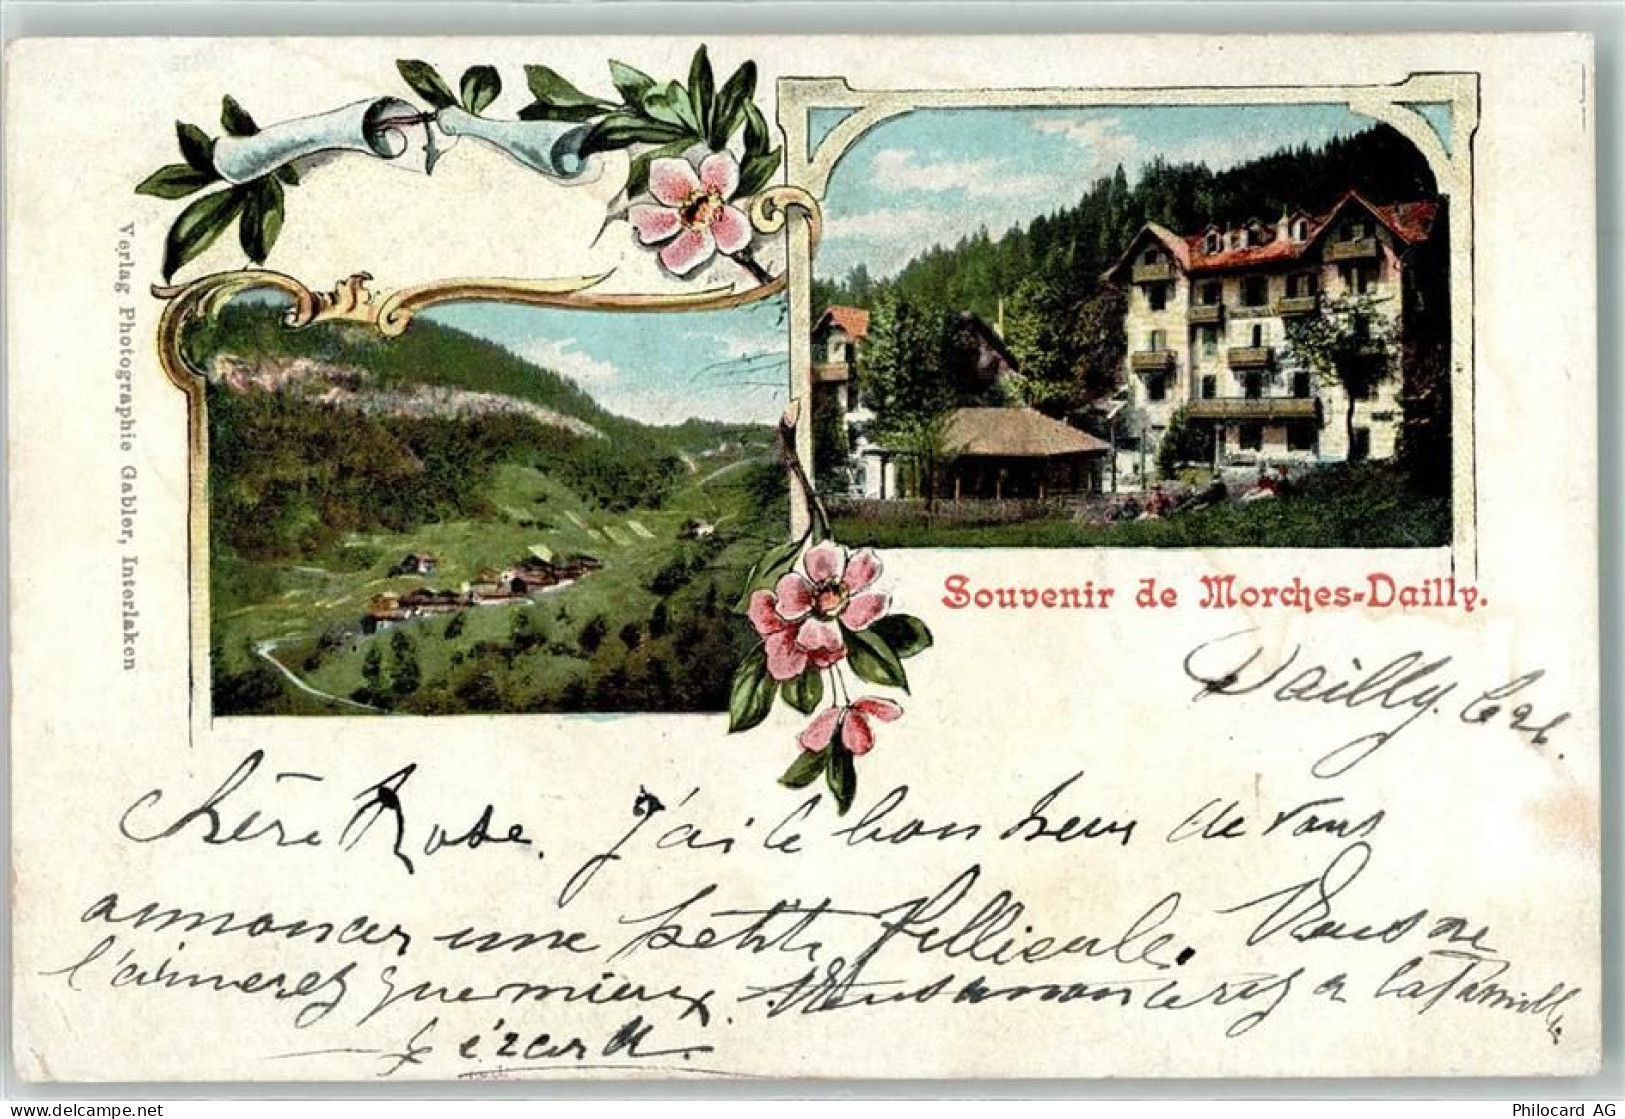 Verlag Photographie Gabler, Interlaken
Souvenir de Morches-Dailly.
Dailly. Ce 26.
Chère Rose. J'ai le bonheur de vous
annoncer une petite fillieule. Vous ne
l'aimerez que mieux. Vous annoncerez a la famille
Gérard.
delcampe.net
yvcollector
Philocard AG